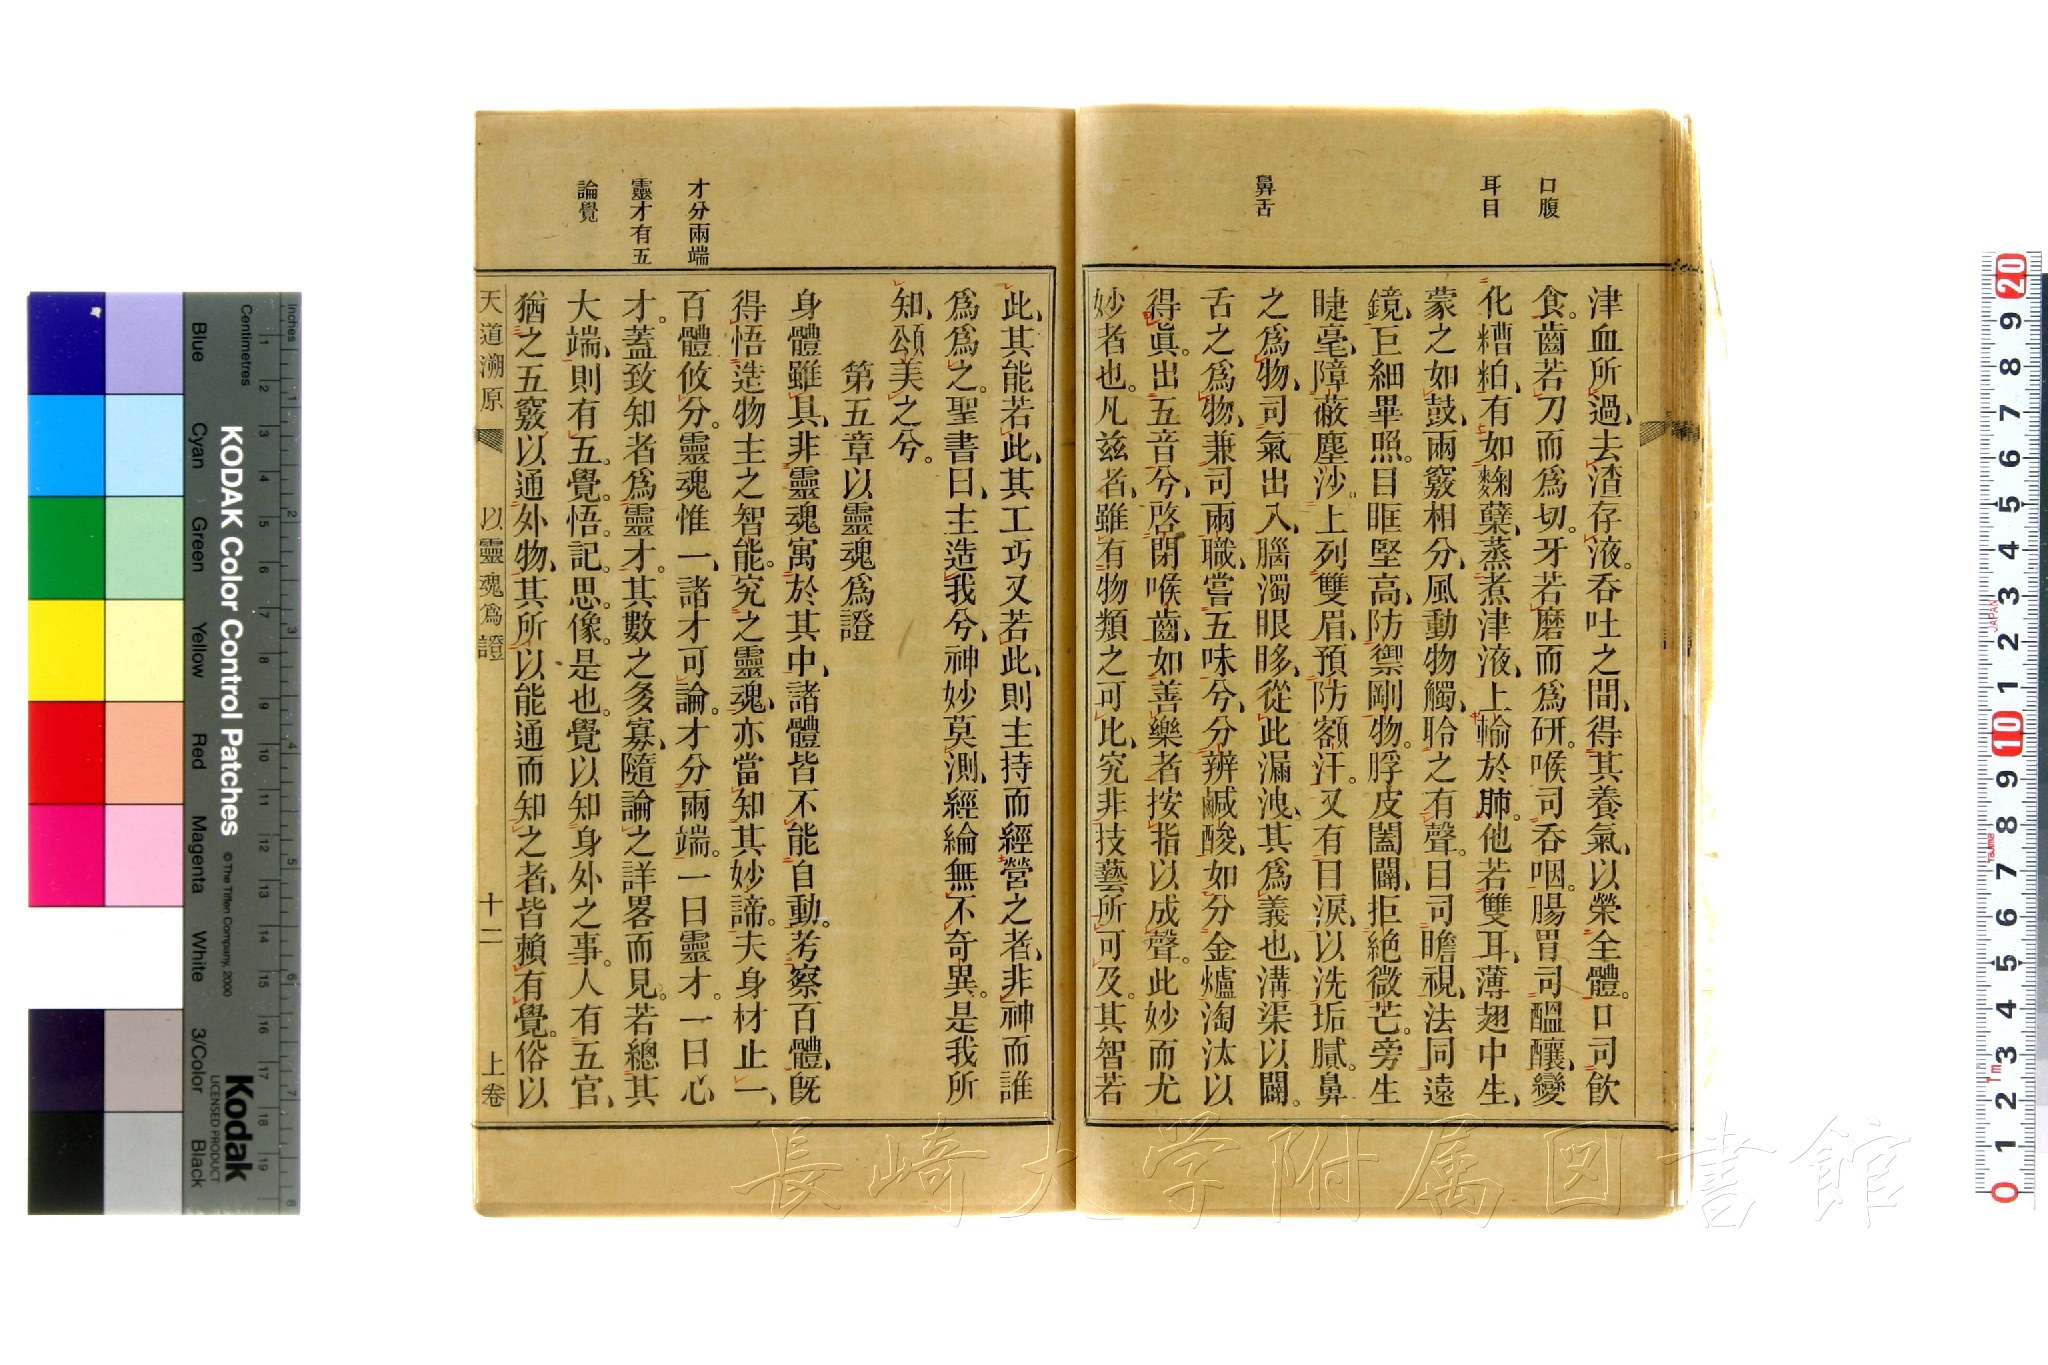 口腹
耳目
鼻舌
津血所過、去渣存液。吞吐之間、得其養氣、以榮全體。口司飮
食。齒若刀而爲切。牙若磨而爲研。喉司吞咽。腸胃司醞釀、變
化糟粕、有如麴蘖、蒸煮津液、上輸於肺。他若雙耳、薄翅中生、
蒙之如鼓、兩竅相分、風動物觸、聆之有聲。目司瞻視、法同遠
鏡、巨細畢照。目眶堅高、防禦剛物。脬皮闔闢、拒絶微芒。旁生
睫毫、障蔽塵沙。上列雙眉、預防額汗。又有目淚、以洗垢膩。鼻
之爲物、司氣出入、腦濁眼眵、從此漏洩、其爲義也、溝渠以闢。
舌之爲物、兼司兩職、嘗五味兮、分辨鹹酸、如分金爐淘汰以
得眞。出五音兮、啓閉喉齒、如善樂者按指以成聲。此妙而尤
妙者也。凡兹者、雖有物類之可比、究非技藝所可及。其智若
才分兩端
靈才有五
論覺
此、其能若此、其工巧又若此、則主持而經營之者、非神而誰
爲爲之。聖書曰、主造我兮、神妙莫測、經綸無不奇異。是我所
知、頌美之兮。
第五章以靈魂爲證
身體雖具、非靈魂寓於其中、諸體皆不能自動。考察百體、旣
得悟造物主之智能。究之靈魂、亦當知其妙諦。夫身材止一、
百體攸分。靈魂惟一、諸才可論。才分兩端。一曰靈才。一曰心
才。蓋致知者爲靈才。其數之多寡、隨論之詳畧而見。若總其
大端、則有五。覺。悟。記。思。像。是也。覺以知身外之事。人有五官、
猶之五竅以通外物、其所以能通而知之者、皆賴有覺。俗以
天道溯原
以靈魂爲證
十二
上卷
KODAK Color Control Patches
© The Tiffen Company, 2000
Kodak
LICENSED PRODUCT
Inches
Centimetres
Blue
Cyan
Green
Yellow
Red
Magenta
White
3/Color
Black
1 2 3 4 5 6 7 8 9 10 11 12 13 14 15 16 17 18 19
1 2 3 4 5 6 7 8
20 9 8 7 6 5 4 3 2 1 10 9 8 7 6 5 4 3 2 1 0
JAPAN
Tajima
1m
長崎大学附属図書館